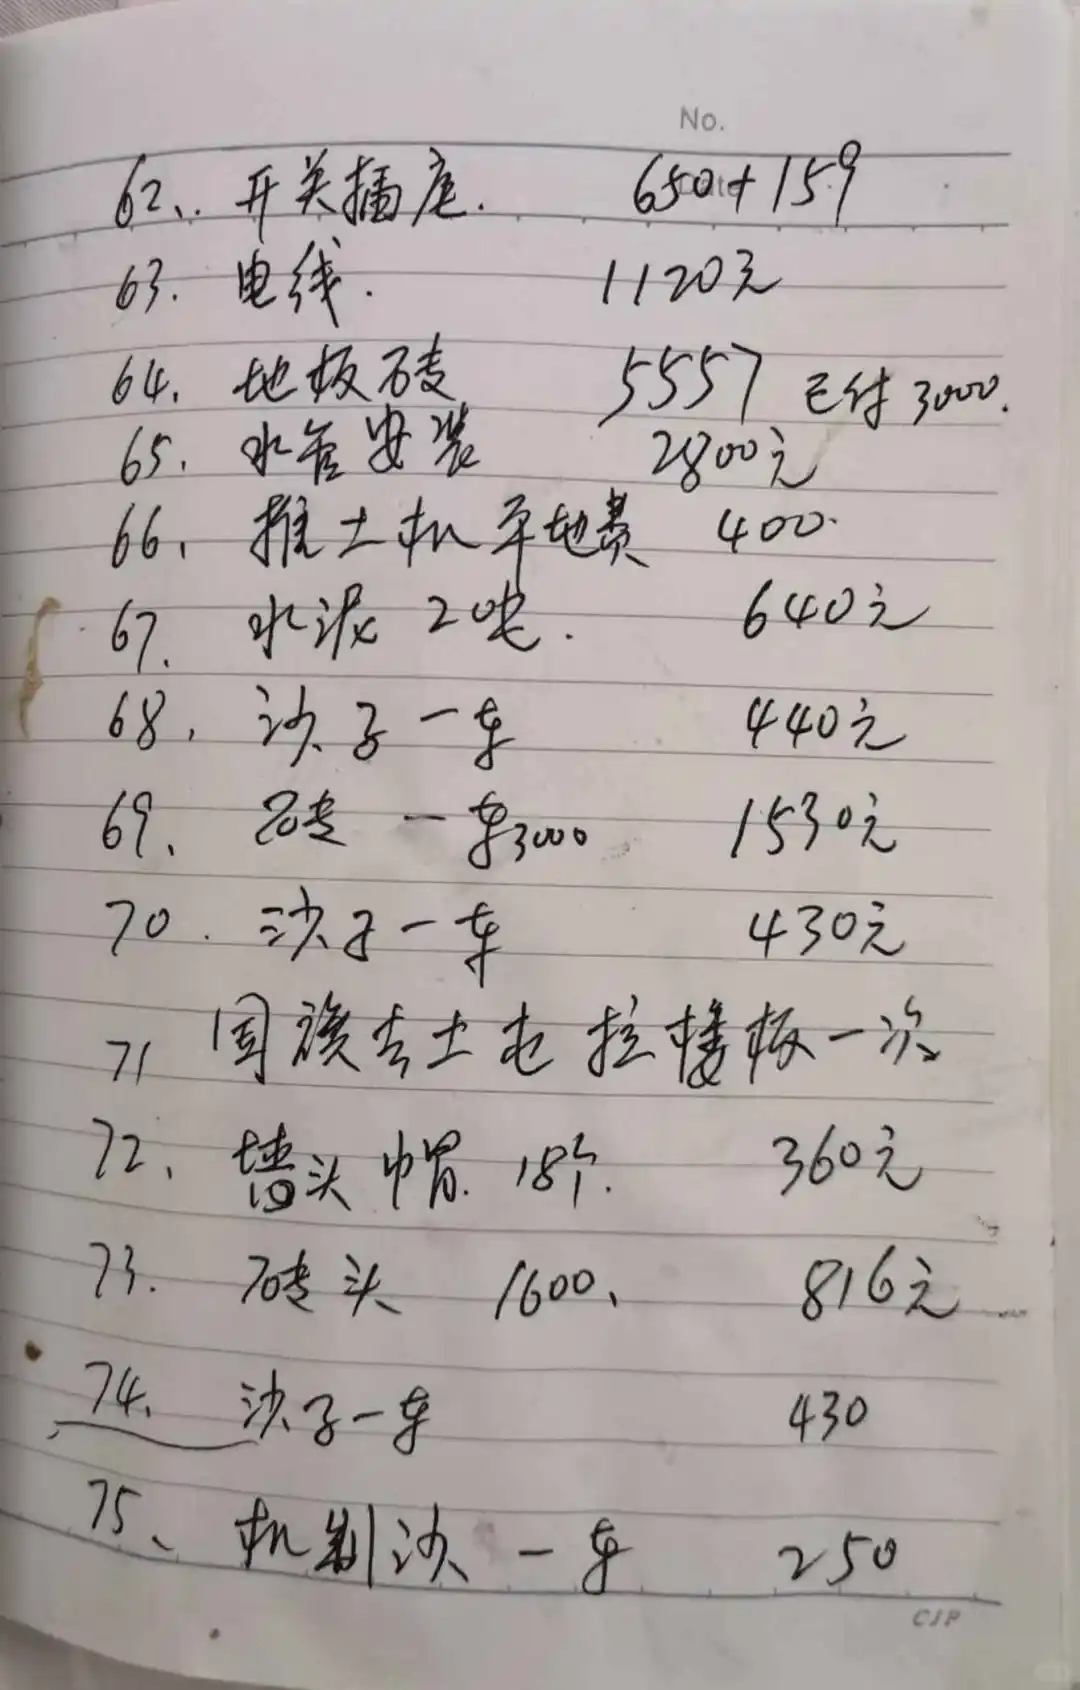 No.
Date
62、开关插座. 650+159
63. 电线. 1120元
64. 地板砖 5557 已付3000.
65. 水管安装 2800元
66. 推土机平地费 400.
67. 水泥 2吨. 640元
68. 沙子一车 440元
69. 砖 一车3000 1530元
70. 沙子一车 430元
71 国 去土 拉楼板一次
72、墙头帽 18个. 360元
73. 砖头 1600、 816元
74. 沙子一车 430
75、机制沙 一车 250